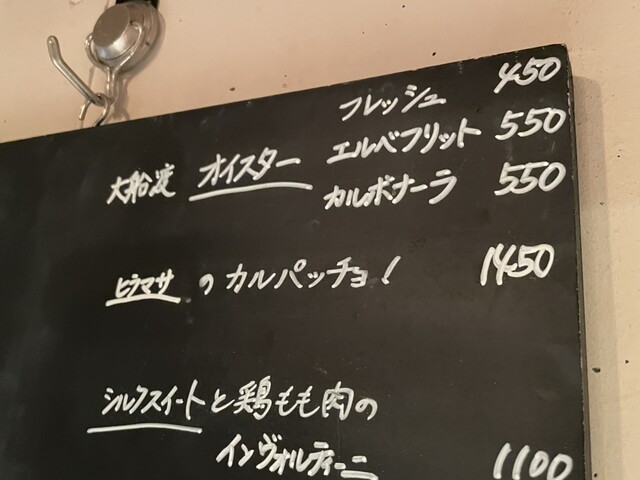 フレッシュ 450
大船渡 オイスター エルベフリット 550
カルボナーラ 550
ヒラマサ の カルパッチョ! 1450
シルクスイートと鶏もも肉の
インヴォルティーニ 1100